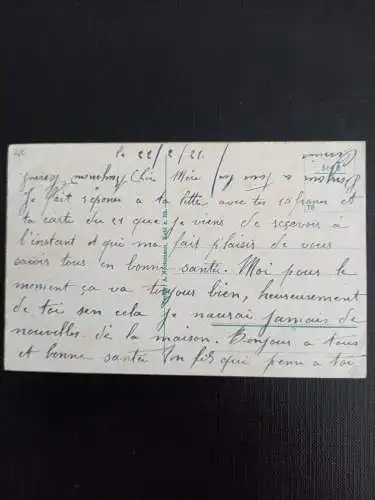 le 22/2/21
Chère Mère
Je fait réponse a ta lettre avec tes 20 francs et
ta carte du 21 que je viens de recevoir à
l'instant et qui me fait plaisir de vous
savoir tous en bonne santée. Moi pour le
moment ça va toujour bien, heureusement
de toi sen cela je naurai jamais de
nouvelles de la maison. Bonjour a tous
et bonne santée ton fils qui pense a toi